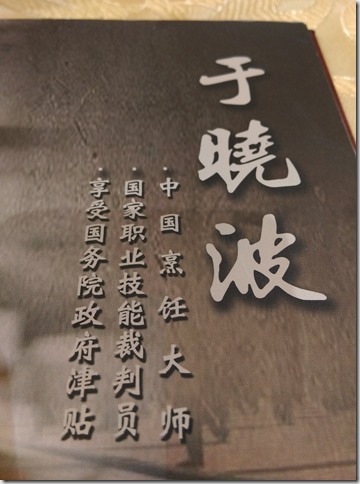 于曉波
·中国烹饪大师
·国家职业技能裁判员
·享受国务院政府津贴